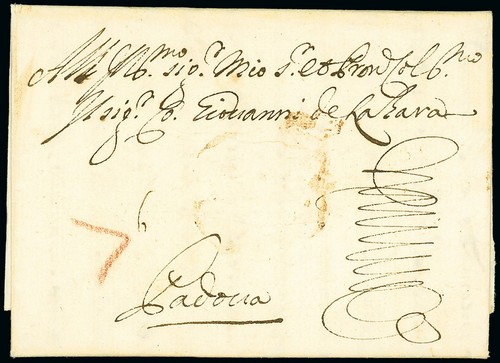 All Ill.mo sig.r Mio s.r et Pron Col.mo
Il sig.r D. Giovanni de La Bara
6
Padova